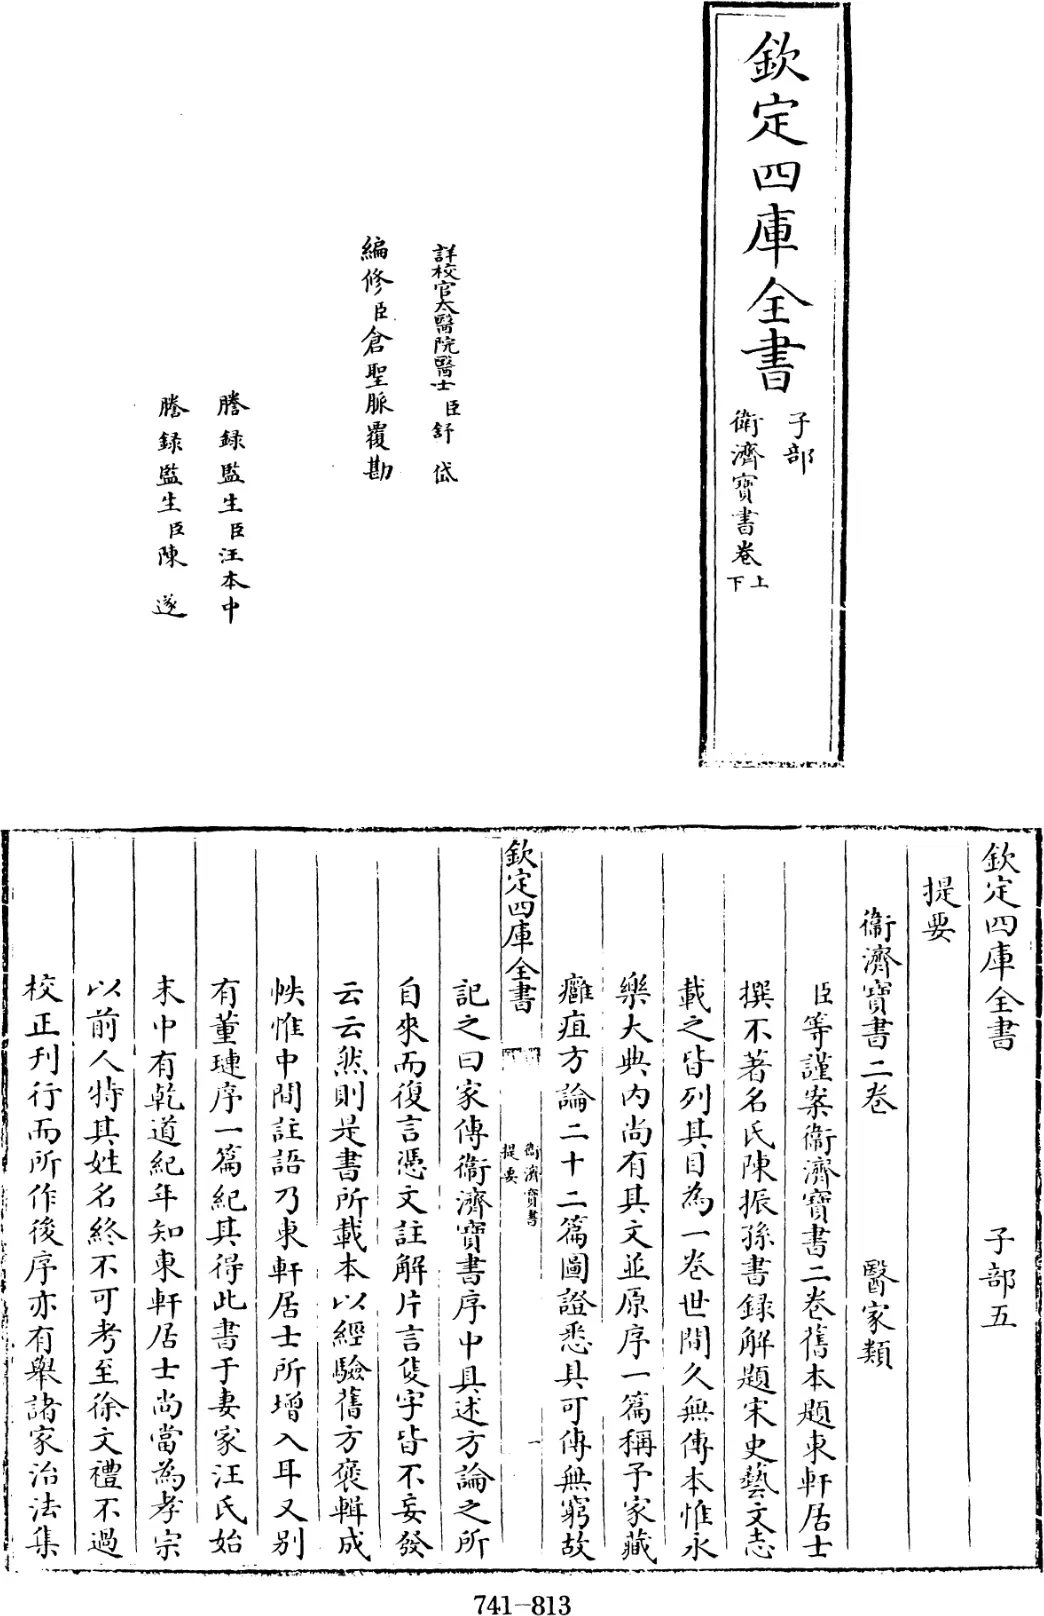 欽定四庫全書
子部
衛濟寶書卷上下
詳校官太醫院醫士臣舒岱
編修臣倉聖脈覆勘
謄録監生臣汪本中
謄録監生臣陳遂
欽定四庫全書 子部五
提要
衛濟寶書二卷 醫家類
臣等謹案衛濟寶書二卷舊本題東軒居士
撰不著名氏陳振孫書録解題宋史藝文志
載之皆列其目為一卷世間久無傳本惟永
樂大典内尚有其文並原序一篇稱予家藏
癰疽方論二十二篇圖證悉具可傳無窮故
欽定四庫全書
衛濟寶書
提要
一
記之曰家傳衛濟寶書序中具述方論之所
自來而復言憑文註解片言隻字皆不妄發
云云然則是書所載本以經驗舊方裒輯成
帙惟中間註語乃東軒居士所增入耳又别
有董璉序一篇紀其得此書于妻家汪氏始
末中有乾道紀年知東軒居士尚當為孝宗
以前人特其姓名終不可考至徐文禮不過
校正刋行而所作後序亦有舉諸家治法集
741-813